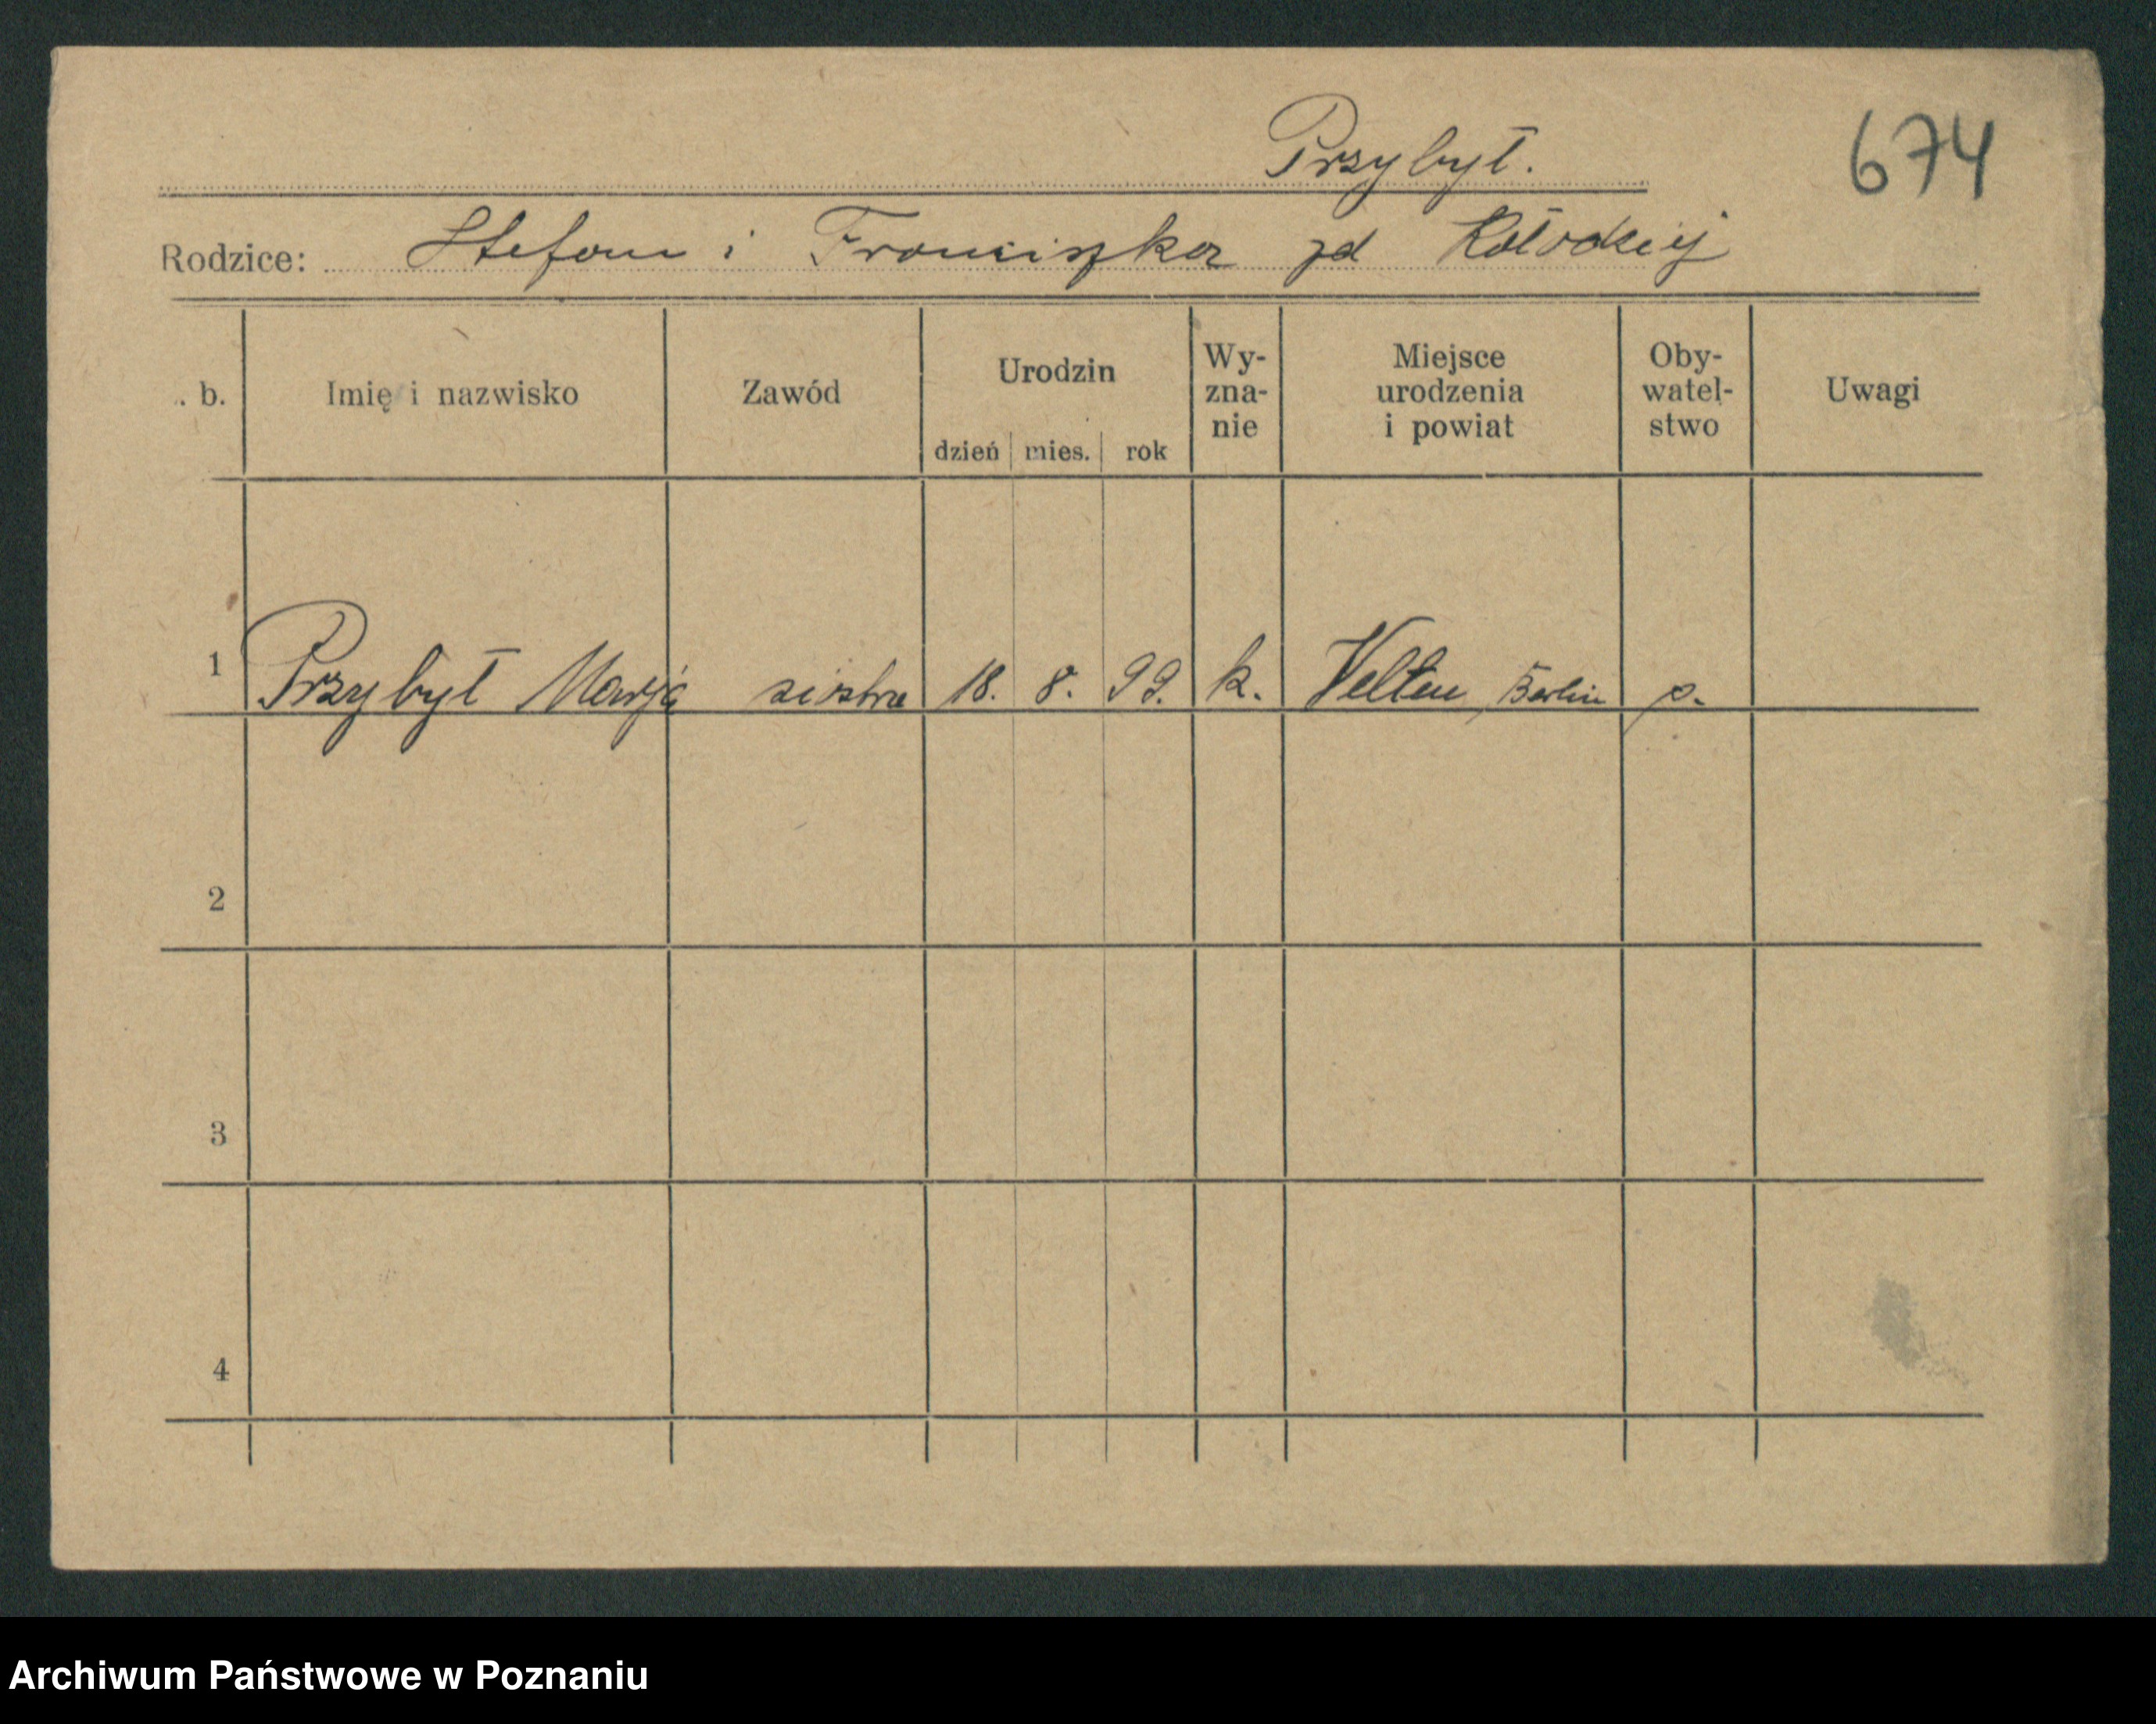 Przybył.
674
Rodzice: Stefan i Franciszka zd Kołodziej
. b.
Imię i nazwisko
Zawód
Urodzin
dzień mies. rok
Wy-
zna-
nie
Miejsce
urodzenia
i powiat
Oby-
watel-
stwo
Uwagi
1 Przybył Marja siostra 18. 8. 99. k. Velten, Berlin p.
2
3
4
Archiwum Państwowe w Poznaniu